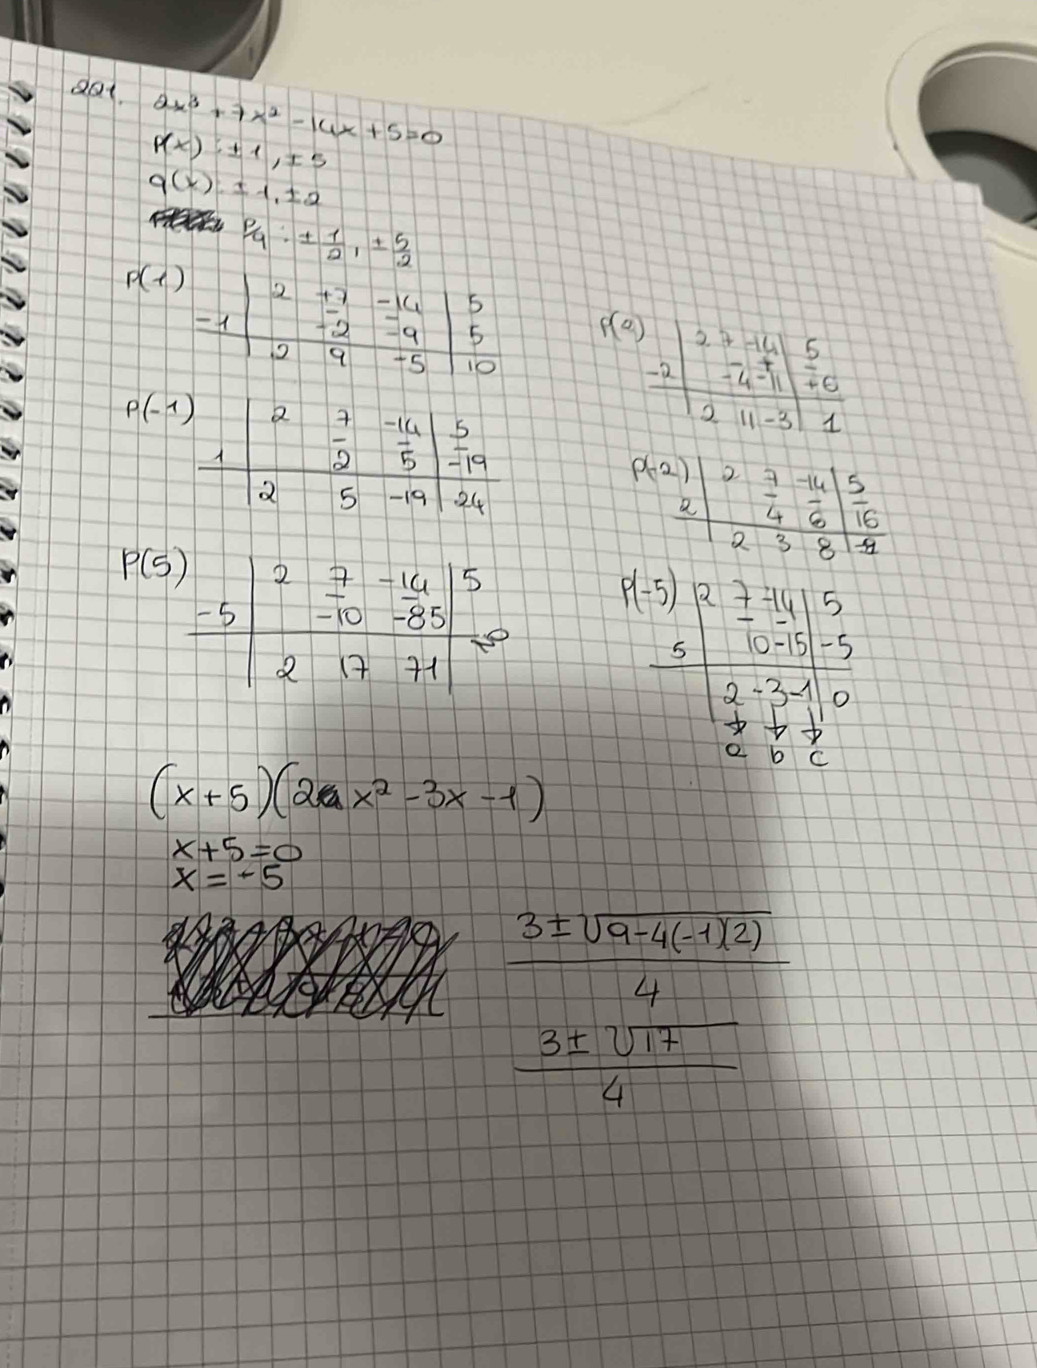 221. 2x³ + 7x² - 14x + 5 = 0
P(x) : ±1, ±5
q(x) : ±1, ±2
P/q : ± 1/2, ± 5/2
P(1) | 2 +7 -14 | 5
-1 | -2 -9 | 5
2 9 -5 | 10
P(-1) | 2 7 -14 | 5
1 | 2 5 | -19
2 5 -19 | 24
P(5) | 2 7 -14 | 5
-5 | -10 -85 |
2 17 71 |
P(2) | 2 7 -14 | 5
-2 | -4 -11 | +6
2 11 -3 | 1
P(-2) | 2 7 -14 | 5
2 | 4 6 | 16
2 3 8
P(-5) | 2 7 -14 | 5
5 | 10 -15 | -5
2 -3 -1 | 0
a b c
(x+5)(2x² - 3x - 1)
x+5=0
x = -5
3 ± √9-4(-1)(2)
4
3 ± √17
4